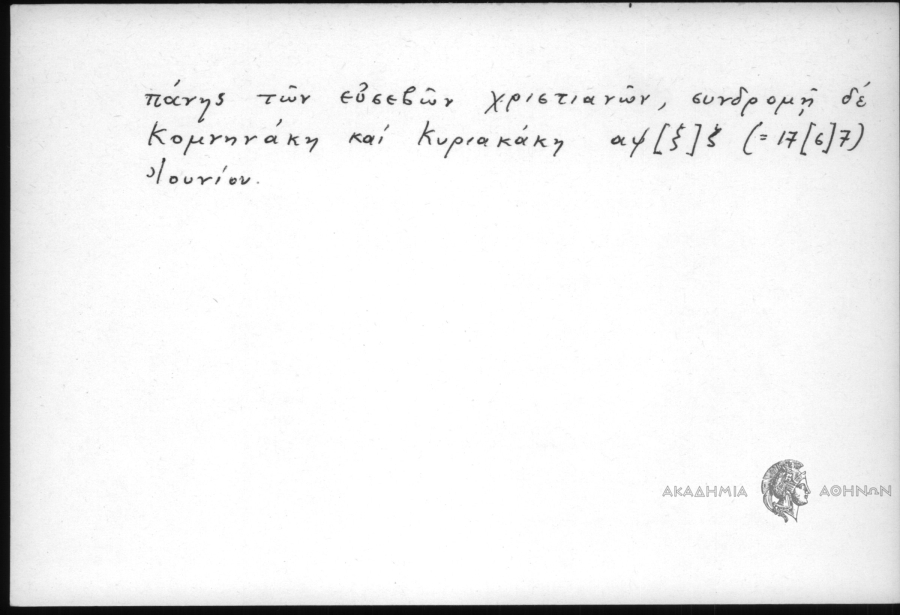 πάνης τῶν εὐσεβῶν χριστιανῶν, συνδρομῇ δέ
Κομνηνάκη καί Κυριακάκη αψ[ξ]ζ (= 17[6]7)
Ἰουνίου.
ΑΚΑΔΗΜΙΑ ΑΘΗΝΩΝ